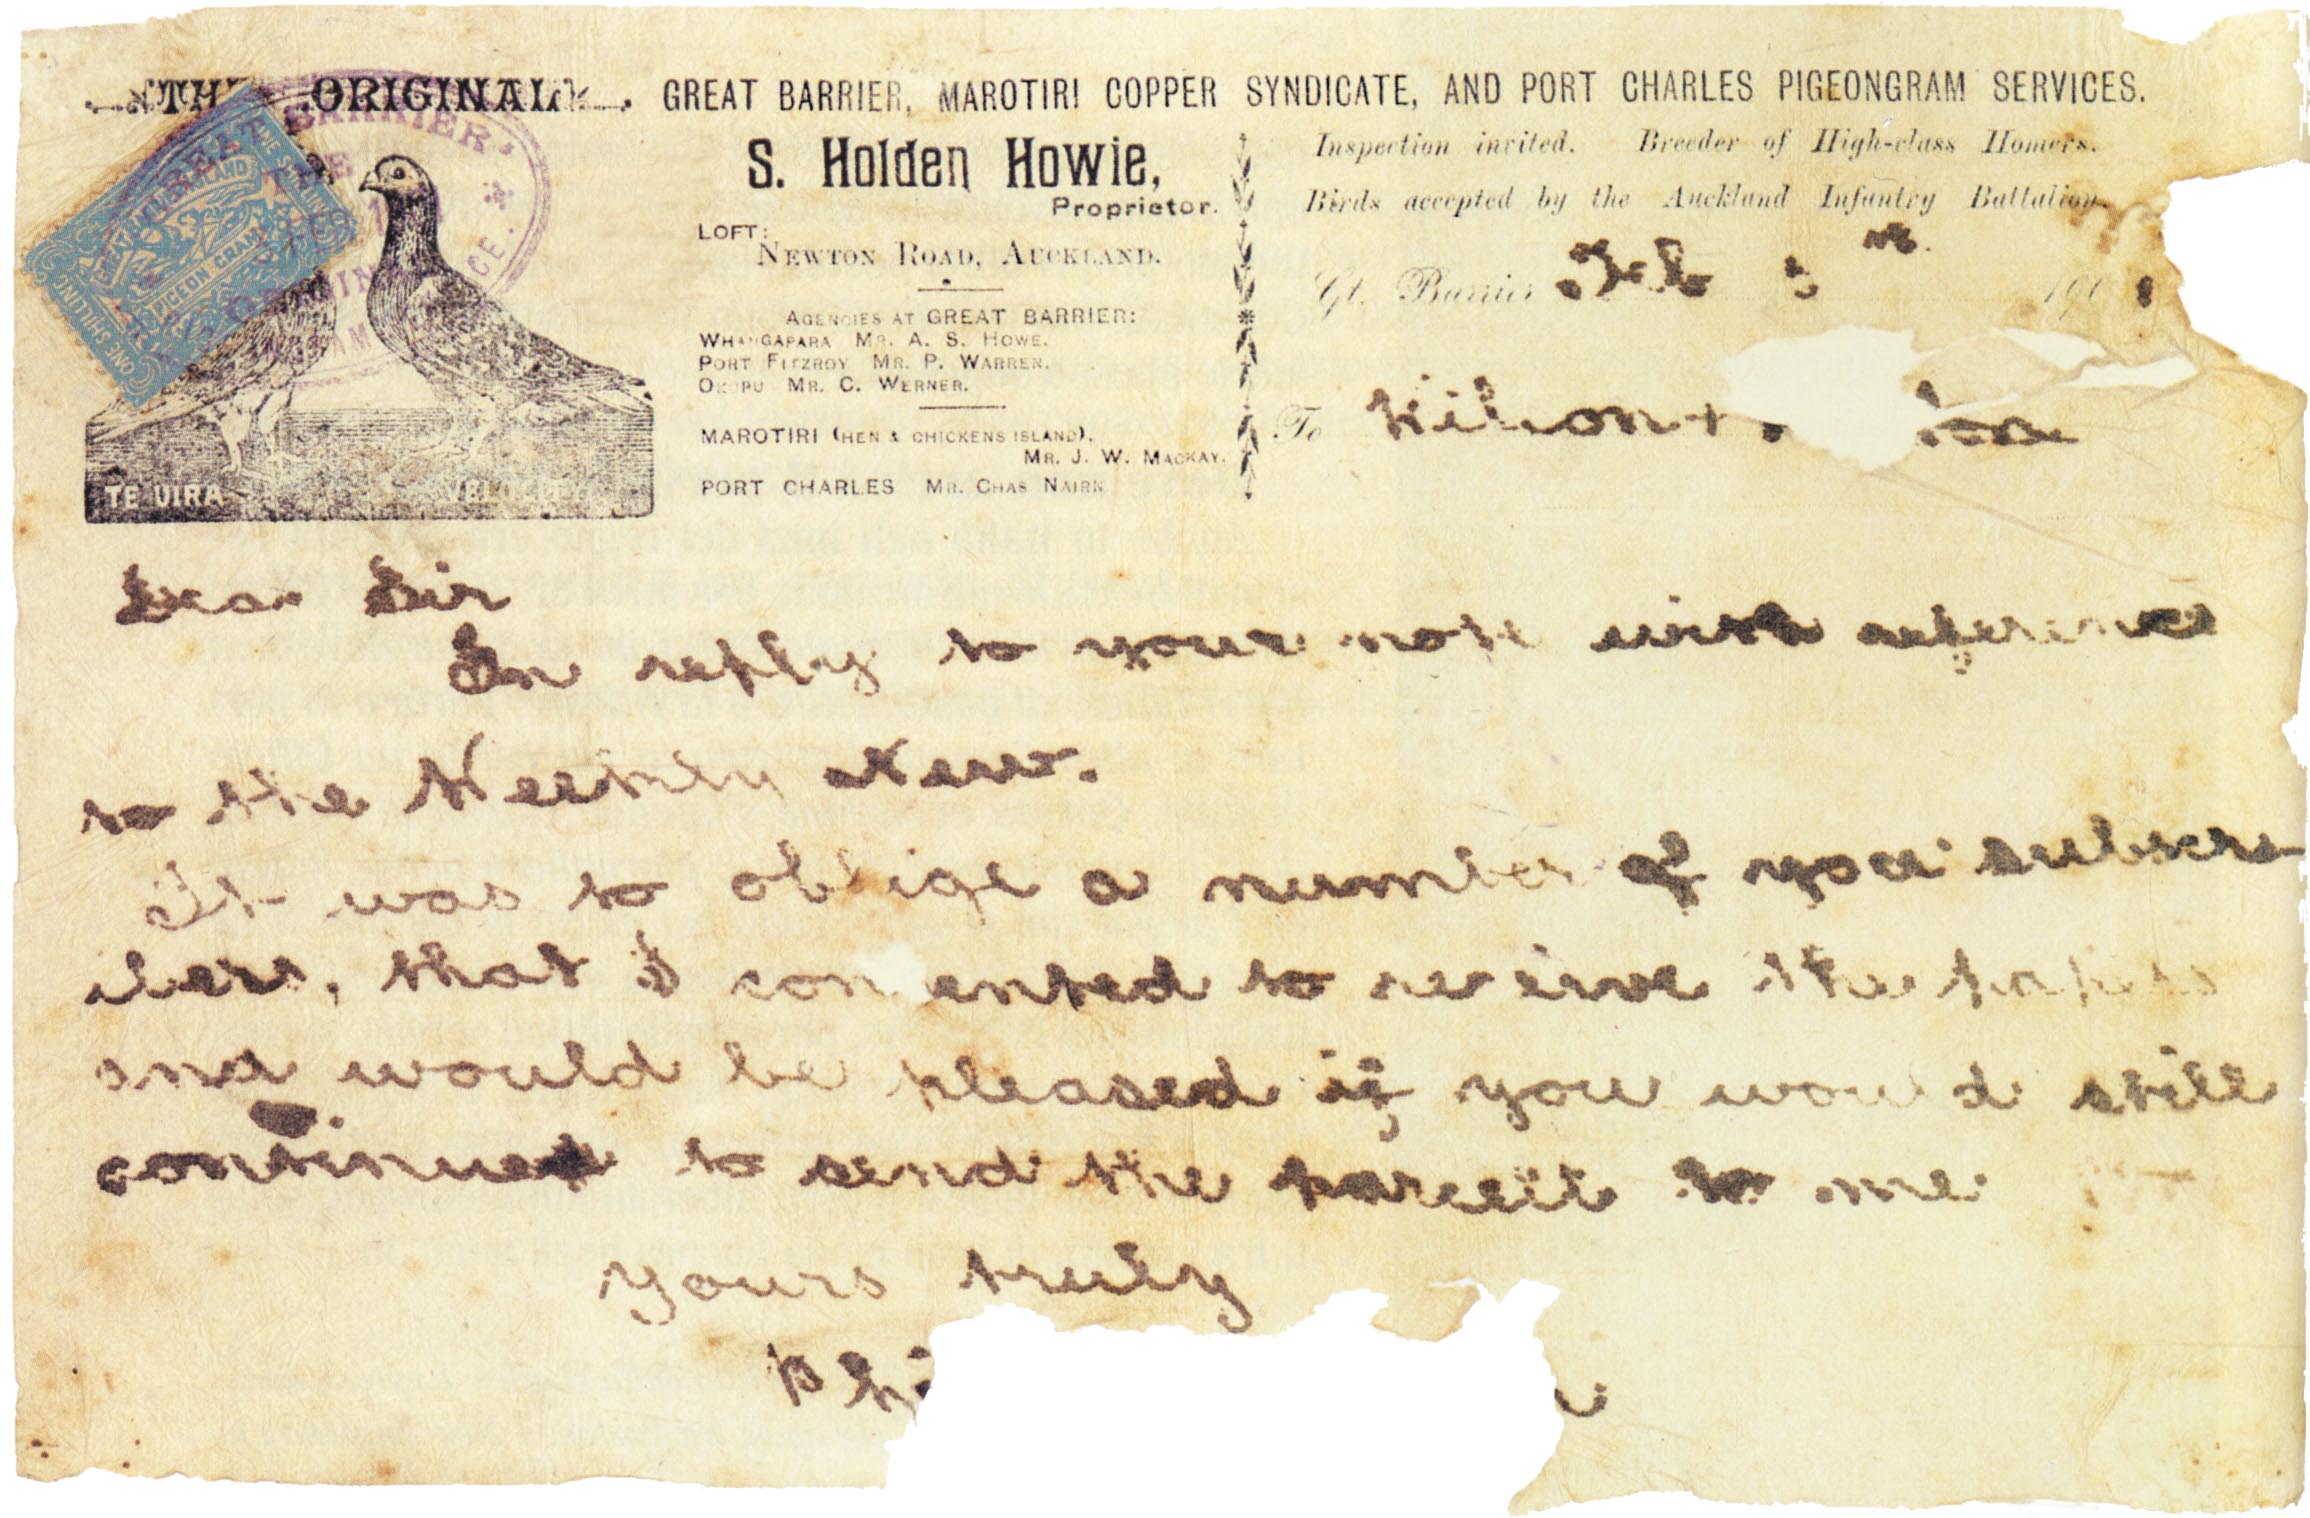 THE ORIGINAL. GREAT BARRIER, MAROTIRI COPPER SYNDICATE, AND PORT CHARLES PIGEONGRAM SERVICES.
S. Holden Howie,
Proprietor.
LOFT:
NEWTON ROAD, AUCKLAND.
AGENCIES AT GREAT BARRIER:
WHANGAPARA MR. A. S. HOWE.
PORT FITZROY MR. P. WARREN.
OKUPU MR. C. WERNER.
MAROTIRI (HEN & CHICKENS ISLAND),
MR. J. W. MACKAY.
PORT CHARLES MR. CHAS NAIRN
Inspection invited. Breeder of High-class Homers.
Birds accepted by the Auckland Infantry Battalion.
Gt. Barrier Feb 190
To Wilson +
GREAT BARRIER
PIGEON GRAM
ONE SHILLING
ONE SHILLING
TE UIRA VELOCITY
Dear Sir
In reply to your note with reference
to the Weekly News.
It was to oblige a number of you subscri
bers, that I con ented to receive the papers
and would be pleased if you would still
continue to send the parcell to me
yours truly